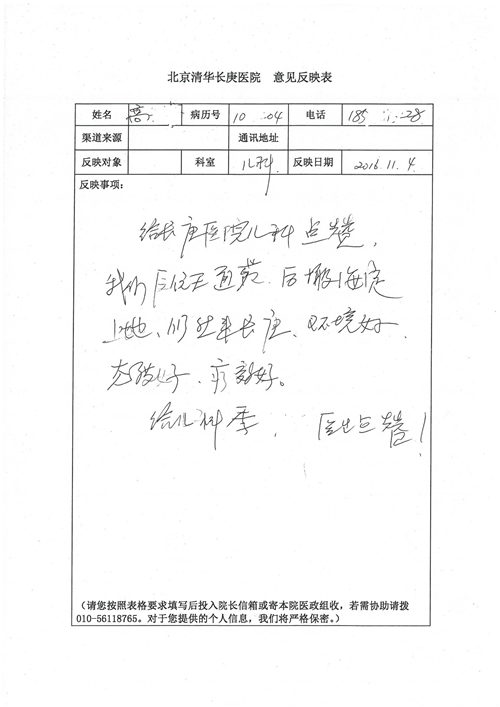 北京清华长庚医院 意见反映表
姓名 高 病历号 10 04 电话 185 28
渠道来源 通讯地址
反映对象 科室 儿科 反映日期 2016.11.4
反映事项:
给长庚医院儿科点赞,
我们 住王 后 海淀
上地、仍然来长庚、环境好
态度好、疗效好。
给儿科季 医生点赞!
(请您按照表格要求填写后投入院长信箱或寄本院医政组收,若需协助请拨
010-56118765。对于您提供的个人信息,我们将严格保密。)